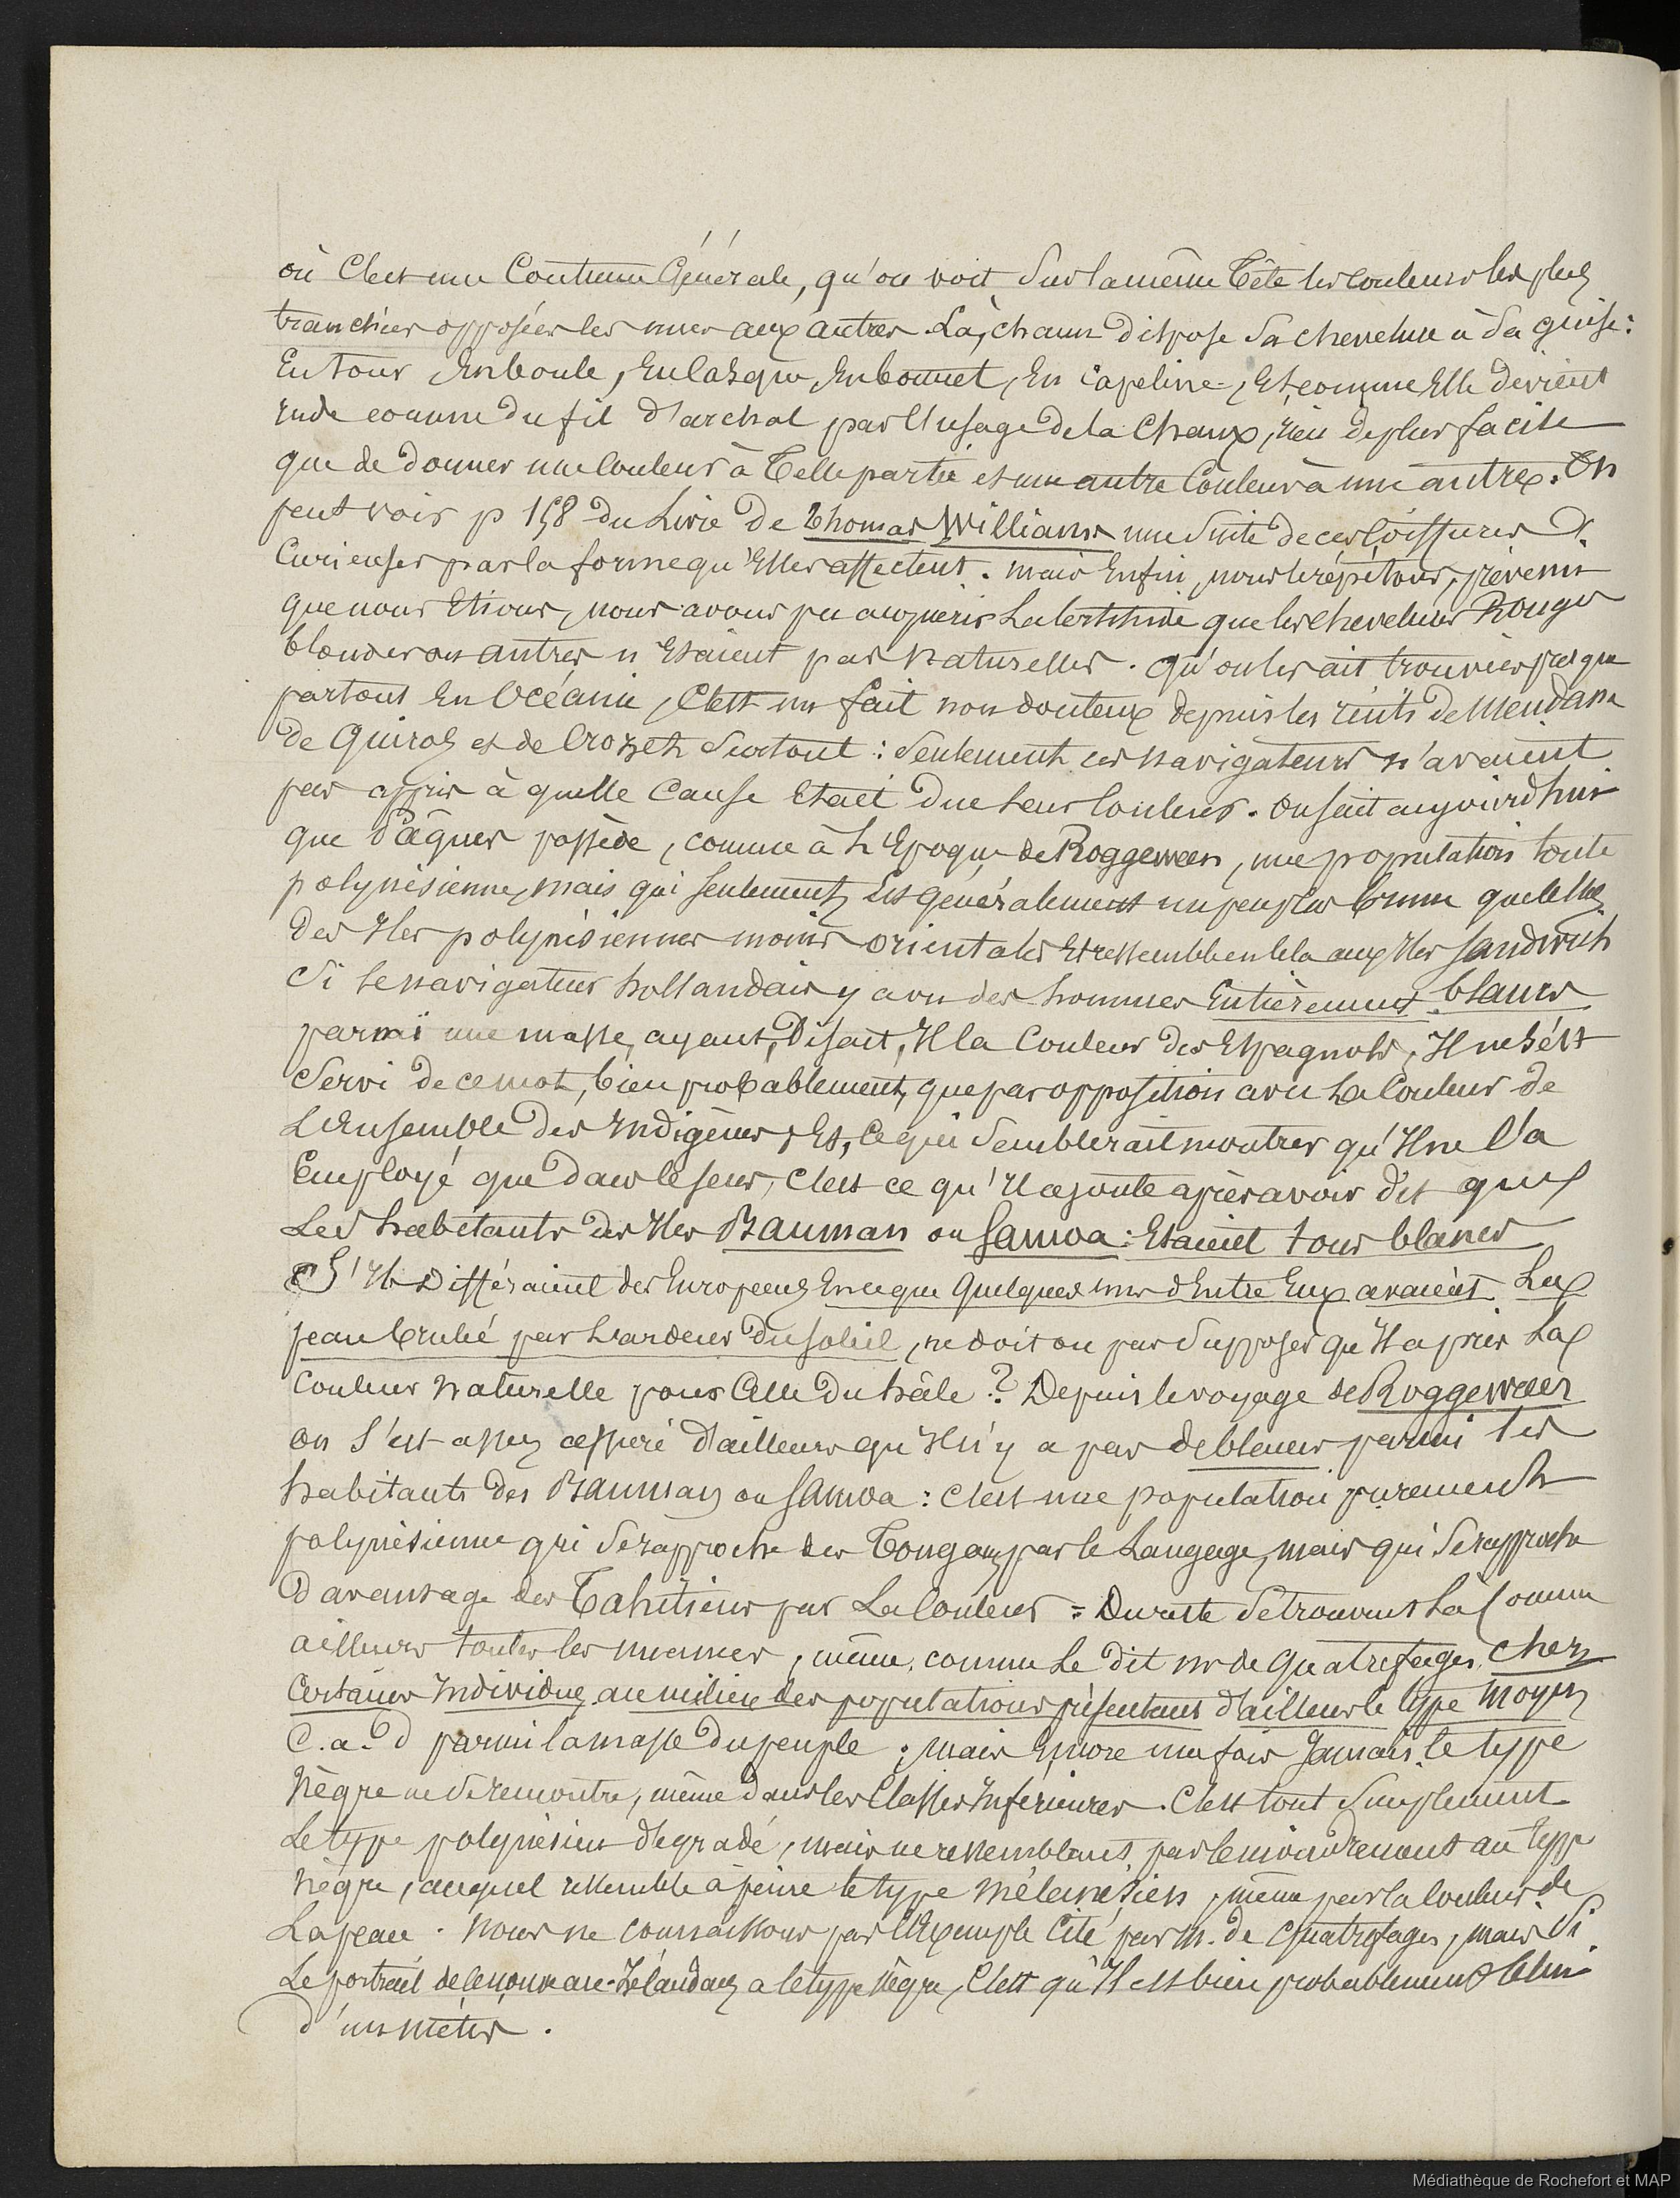 où C'est une Coutume Générale, qu'on voit sur la même Tête les couleurs les plus
tranchées opposées les unes aux autres. Là, chacun dispose sa chevelure à sa guise:
En tour, En boule, En casque, En bonnet, En capeline, Et, comme Elle devient
rude comme du fil d'archal par l'usage de la Chaux, rien de plus facile
que de donner une couleur à Telle partie et une autre Couleur à une autre. On
peut voir p 158 du Livre de Thomas Williams une suite de ces Coiffures
Curieuses par la forme qu'Elles affectent. mais Enfin, nous le répétons, prévenus
que nous Etions, nous avons pu acquérir La Certitude que les chevelures Rouges
blondes ou autres n'Etaient pas naturelles. qu'on les ait trouvées presque
partout En Océanie, C'est un fait non douteux depuis les récits de Mendana
de Quiros et de Crozet surtout: seulement ces navigateurs n'avaient
pas appris à quelle Cause Etait due leur Couleur. On sait aujourd'hui
que Pâques possède, comme à L'Epoque de Roggeween, une population toute
polynésienne, mais qui seulement Est généralement un peu plus brune que celle
des Iles polynésiennes moins orientales Et ressemble en cela aux Iles Sandwich
Si le navigateur hollandais y a vu des hommes Entièrement blancs
parmi une masse, ayant, Disait, Il la Couleur des Espagnols, Il ne s'est
Servi de ce mot, bien probablement, que par opposition avec La Couleur de
L'Ensemble des Indigènes; Et, Ce qui Semblerait montrer qu'Il ne l'a
Employé que dans le sens, C'est ce qu'Il ajoute après avoir dit que
Les habitants des Iles Bauman ou Samoa: Etaient tous blancs
S'Ils Différaient des Européens En ce que Quelques uns d'Entre Eux avaient La
peau brulée par L'ardeur du soleil, ne doit on pas supposer qu'Il a pris La
Couleur naturelle pour Celle du hâle? Depuis le voyage de Roggeween
on s'est assez assuré d'ailleurs qu'Il n'y a pas de blancs parmi les
habitants des Bauman ou Samoa: C'est une population purement
polynésienne qui se rapproche des Tongans par le Langage, mais qui se rapproche
Davantage des Tahitiens par La Couleur = Du reste se trouvent Là Comme
ailleurs toutes les nuances, même, comme Le dit mr de Quatrefages, chez
Certains Individus au milieu des populations présentant d'ailleurs le type moyen
C.a.d parmi la masse du peuple; mais Encore une fois Jamais le type
Nègre ne se rencontre, même dans les Classes Inférieures. C'est tout simplement
Le type polynésien dégradé, mais ne ressemblant pas le moindrement au type
Nègre, auquel ressemble à peine le type Mélanésien, même par la couleur de
La peau. Nous ne connaissons pas l'Exemple Cité par M. de Quatrefages, mais Si
Le portrait de ce nouveau-Zélandais a le type Nègre, C'est qu'Il est bien probablement Celui
d'un métis.
Médiathèque de Rochefort et MAP